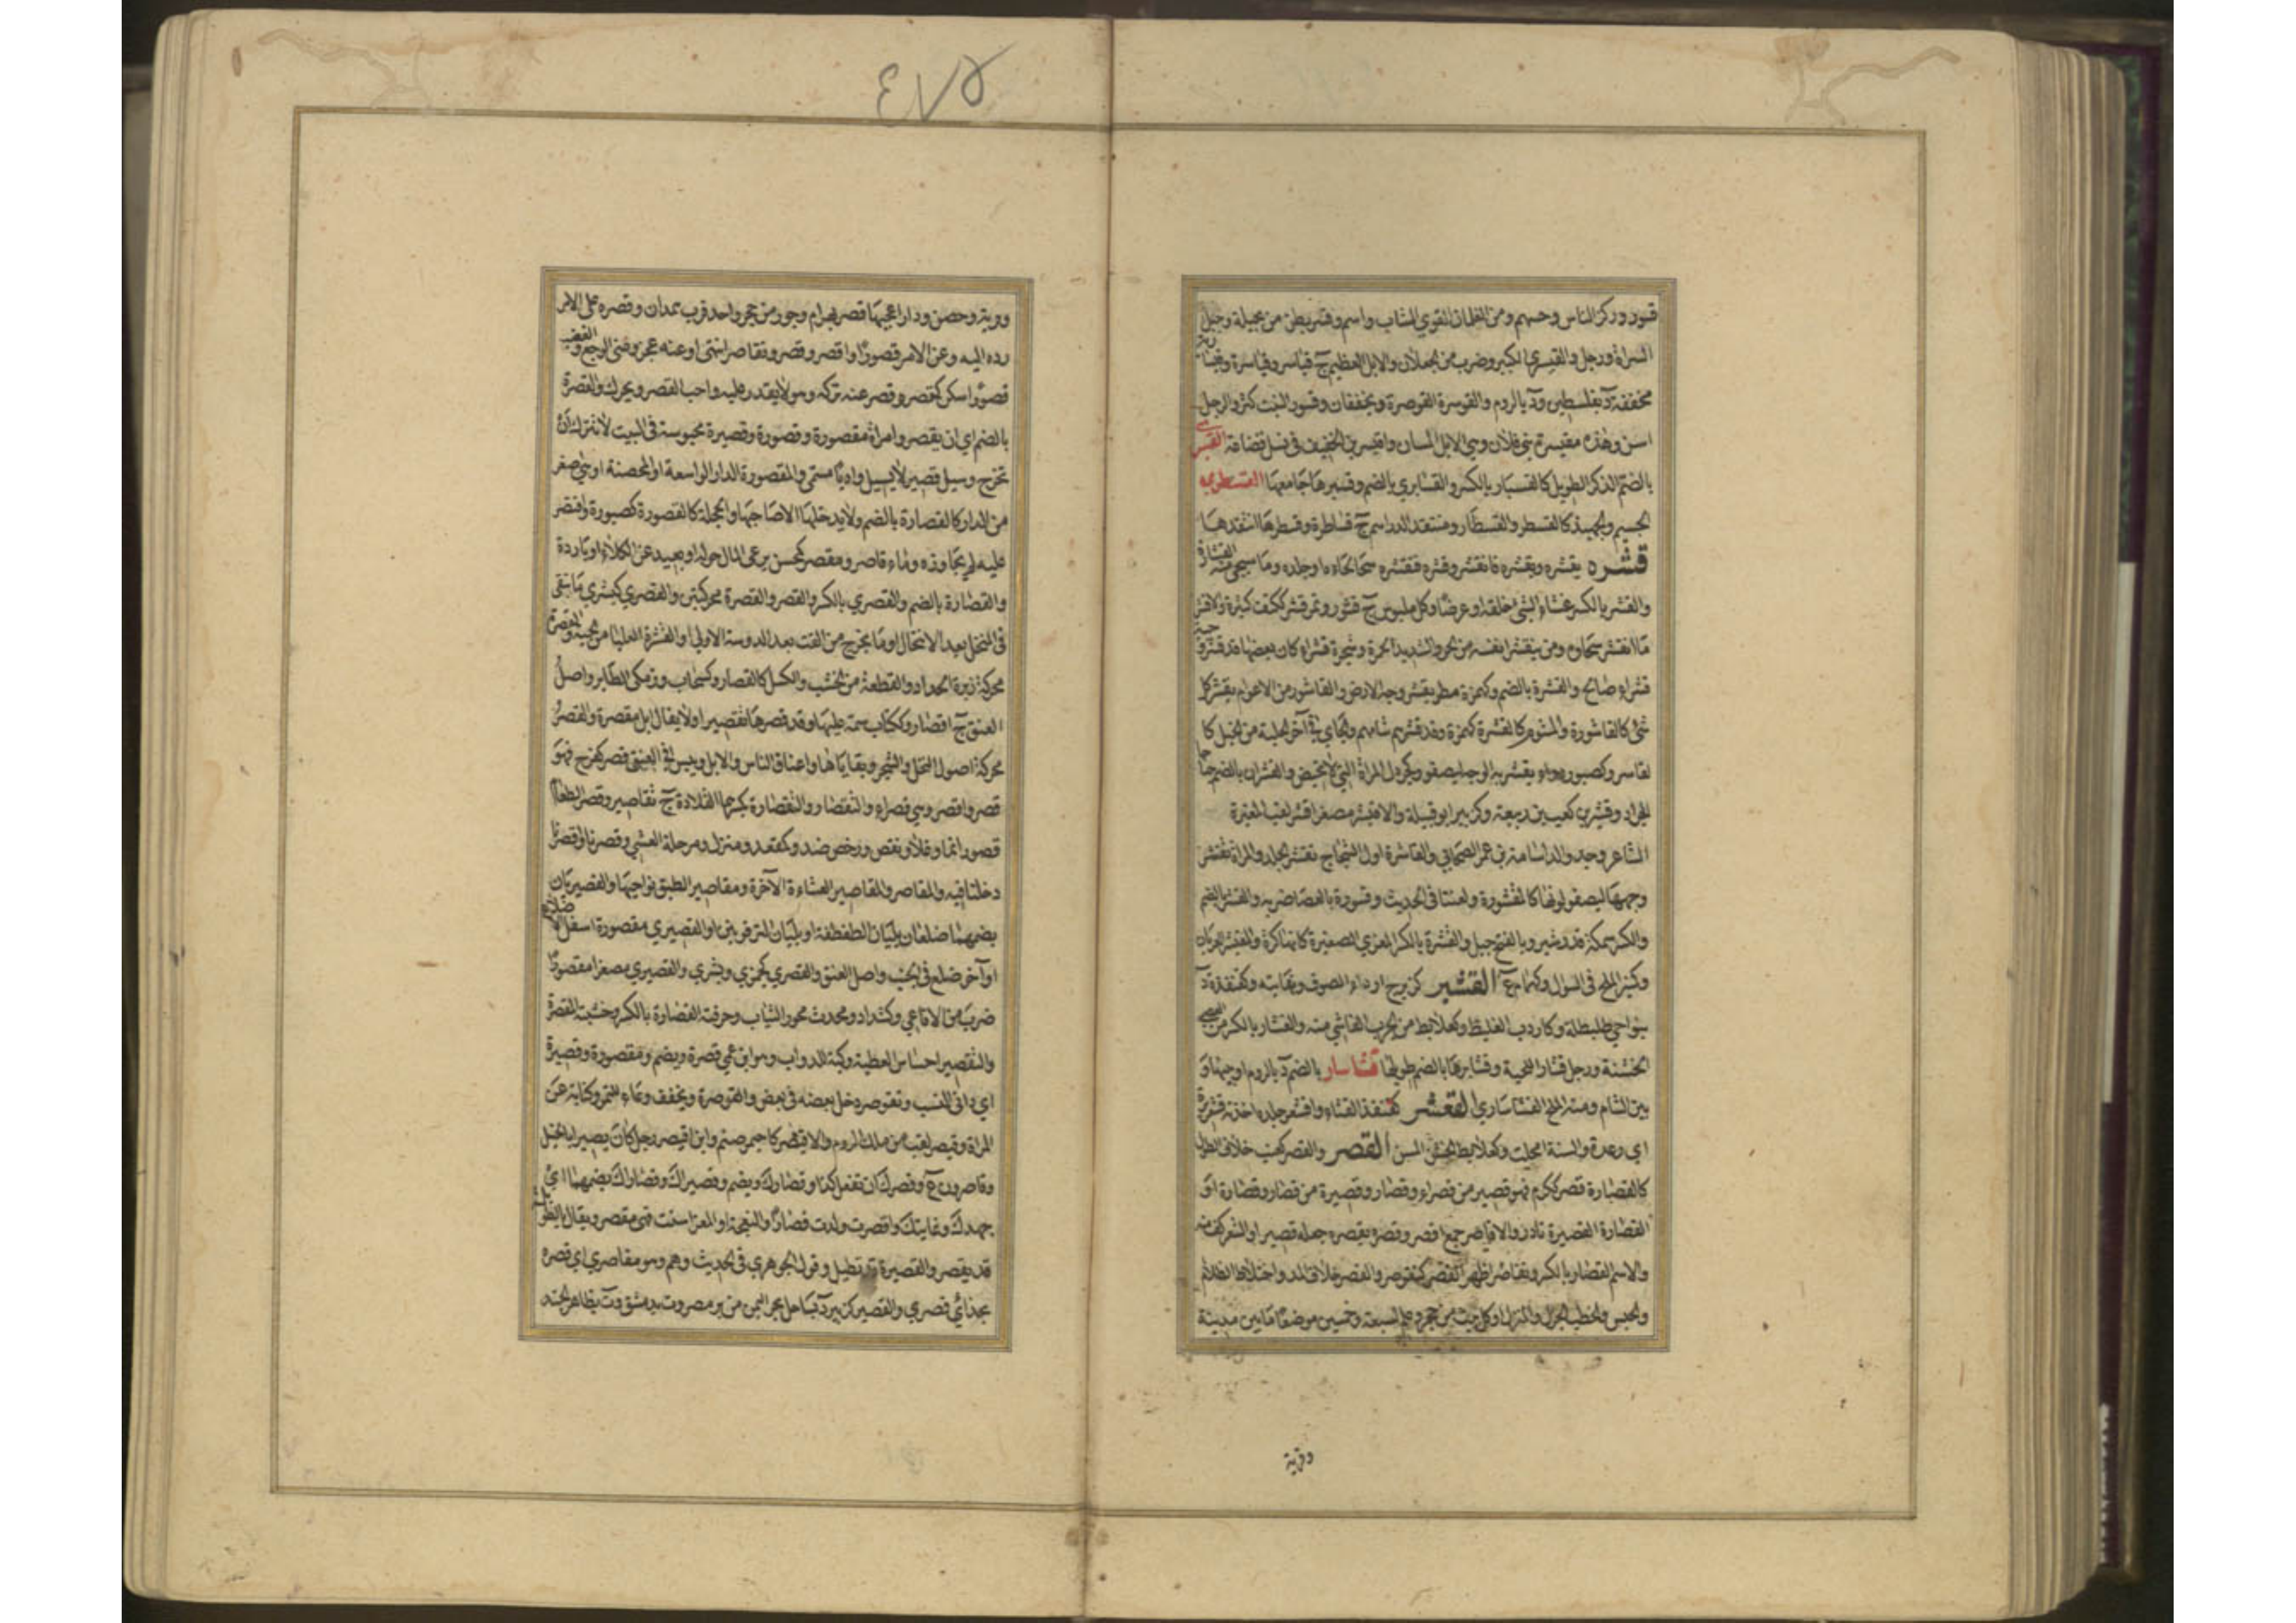 قسور وركز الناس وحسهم ومن الغلمان القوي الشاب واسم وقسر بطن من بجيلة وجبل
السراة ورجل والقيسري الكبير وضرب من الجعلان والابل العظيم ج قياسر وقياسرة
مخففة د بفلسطين ود بالروم والقوسرة القوصرة ويخففان وقسور النبت كثر والرجل
اسن وهذه مقيسرة بني فلان وهي الابل المسان واقيسر بن الخفيف في نسل قضاعة القسبر
بالضم الذكر الطويل كالقسبار بالكسر والقسابري بالضم وقسبرها جامعها القسطري
الجسيم والجهبذ كالقسطر والقسطار ومنتقد الدراهم ج قساطرة وقسطرها انتقدها
قشره يقشره ويقشره فانقشر وقشره فتقشر سحا لحاءه او جلده وما سحي منه القشارة
والقشر بالكسر غشاء الشي خلقة او عرضا وكل ملبوس ج قشور وتمر قشر ككتف كثيره والاقشر
ما انقشر سحاوه ومن ينقشر انفه من الحر والشديد الحمرة وشجرة قشراء كان بعضها قد قشر
قشراء صالح والقشرة بالضم وكهمزة مطر يقشر وجه الارض والقاشور من الاعوام يقشر كل
شي كالقاشورة والمشوم كالقشرة كهمزة وقد قشرهم شامهم والجاي في آخر الحلبة من الخيل كا
لقاشر وكصبور دواء يقشر به الوجه ليصفو وكجرول المراة التي لا تحيض والقشران بالضم جناحا
الجراد وقشير بن كعب بن ربيعة وكزبير ابو قبيلة والاقيشر مصغر اقشر لقب المغيرة
الشاعر وجد والد اسامة بن عمر الصحابي والقاشرة اول الشجاج تقشر الجلد والمراة تقشر
وجهها ليصفو لونها كالمقشورة ولعنتا في الحديث وقشورة بالعصا ضربه والقشر بالضم
والكسر سمكة قدر شبر وبالفتح جبل والقشرة بالكسر المعزي الصغيرة كانها كرة والمقشر العريان
وكمنبر الملح في السؤال وكهمام ع القشبر كزبرج اردا الصوف ونفايته وكقنفذة د
بنواحي طليطلة وكاردب الغليظ وكعلابط من الجرب الفاشي منه والقشبار بالكسر من العصي
الخشنة ورجل قشبار اللحية وقشابرها بالضم طويلها قشاسار بالضم د بالروم او جبها و
بين الشام ومنه الملح القشاساري القشعر كقنفذ القثاء واقشعر جلده اخذته قشعريرة
اي رعدة والسنة امحلت وكعلابط الخشن المس القصر والقصر كعنب خلاف الطول
كالقصارة قصر ككرم فهو قصير من قصراء وقصار وقصيرة من قصار وقصارة او
القصارة القصيرة نادر والاقاصر جمع اقصر وقصره يقصره جعله قصيرا والشعر كف منه
والاسم القصار بالكسر وتقاصر اظهر القصر كتقوصر والقصر خلاف المد واختلاط الظلام
والحبس والحطب الجزل والمنزل او كل بيت من حجر وعلم لسبعة وخمسين موضعا ما بين مدينة
وقرية
٤٧٥
وقرية وحصن ودار اعجبها قصر بهرام جور من حجر واحد قرب همدان وقصره على الامر
رده اليه وعن الامر قصورا واقصر وقصر وتقاصر انتهى او عنه عجز وعني الوجع والغضب
قصورا سكن كقصر وقصر عنه تركه وهو لا يقدر عليه واحب القصر ويحرك والقصرة
بالضم اي ان يقصر وامراة مقصورة وقصورة وقصيرة محبوسة في البيت لا تترك ان
تخرج وسيل قصير لا يسيل واديا مسمى والمقصورة الدار الواسعة المحصنة او هي اصغر
من الدار كالقصارة بالضم ولا يدخلها الا صاحبها والحجلة كالقصورة كصبورة واقتصر
عليه لم يجاوزه وماء قاصر ومقصر كمحسن يرعى المال حوله او بعيد عن الكلاء او بارد
والقصارة بالضم والقصري بالكسر والقصر والقصرة محركتين والقصرى كبشرى ما يبقى
في المنخل بعد الانتخال او ما يخرج من القت بعد الدوسة الاولى او القشرة العليا من الحبة والقصرة
محركة زبرة الحداد والقطعة من الخشب والكسل كالقصار كسحاب وزمكى الطاير واصل
العنق ج اقصار وككتاب سمة عليها وقد قصرها تقصيرا ولا يقال ابل مقصرة والقصر
محركة اصول النخل والشجر وبقاياها واعناق الناس والابل ويبس في العنق قصر كفرح فهو
قصر واقصر وهي قصراء والتقصار والتقصارة بكسرهما القلادة ج تقاصير وقصر الطعام
قصورا نما وغلا ونقص ورخص ضد وكمقعد ومنزل ومرحلة العشي وقصرنا واقصرنا
دخلنا فيه والمقاصر والمقاصير العشاء الآخرة ومقاصير الطبق نواحيها والقصيريان
بضمهما ضلعان يليان الطفطفة او يليان الترقوتين او القصيرى مقصورة اسفل الاضلاع
او آخر ضلع في الجنب واصل العنق والقصرى كجمزى وبشرى والقصيرى مصغرا مقصورا
ضرب من الافاعي وكشداد ومحدث محور الثياب وحرفته القصارة بالكسر وخشبته المقصرة
والتقصير اخساس العطية وكية للدواب وهو ابن عمي قصرة ويضم ومقصورة وقصيرة
اي داني النسب وتقوصر دخل بعضه في بعض والقوصرة ويخفف وعاء للتمر وكناية عن
المراة وقيصر لقب من ملك الروم والاقيصر كاحيمر صنم وابن اقيصر رجل كان بصيرا بالخيل
وقاصرون ع وقصرك ان تفعل كذا وقصارك ويضم وقصيراك وقصاراك بضمهما اي
جهدك وغايتك واقصرت ولدت قصارا والنعجة او المعز اسنت فهي مقصر ويقال الطويلة
قد تقصر والقصيرة قد تطيل وقول الجوهري في الحديث وهم وهو مقاصري اي قصره
بحذائي قصري والقصير كزبير د بساحل بحر اليمن من بر مصر وة بدمشق وة بظاهر الجند